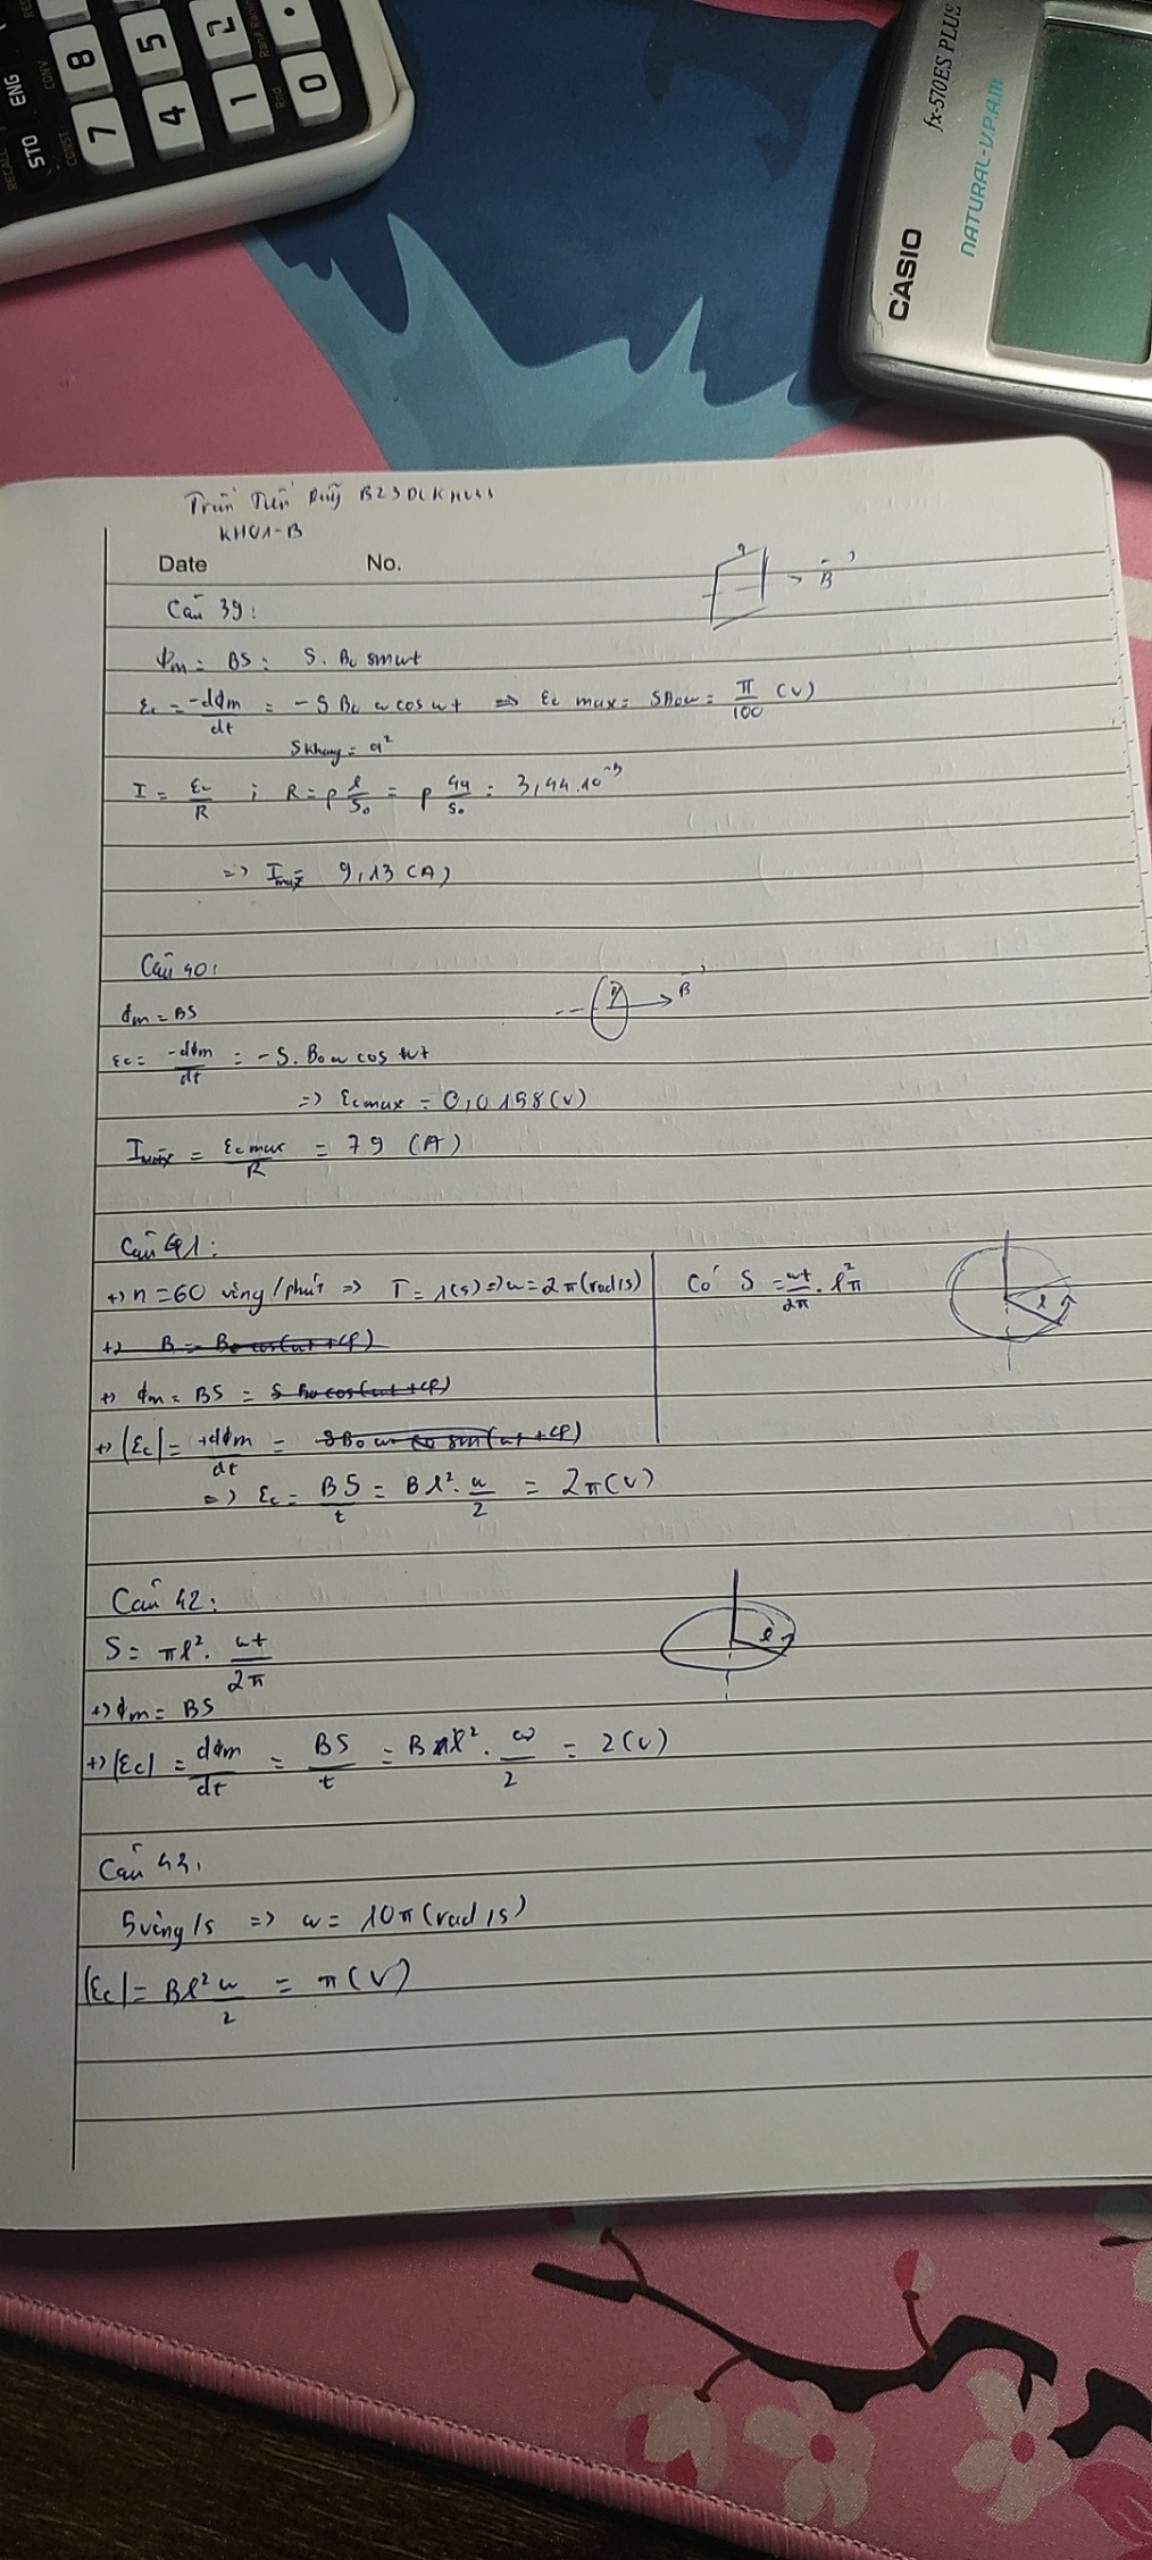 RECALL
STO
ENG
CONST
CONV
7
8
4
5
1
2
0
•
Rnd
fx-570ES PLUS
NATURAL-V.P.A.M.
CASIO
Trần Tiến B23DCKH
KHOA-B
Date No.
B
Câu 39:
Φm = BS = S. B₀ sin ωt
εc = -dΦm/dt = -S B₀ ω cos ωt => εc max = SB₀ω = π/100 (V)
S khung = a²
I = εc/R ; R = ρ l/S₀ = ρ 4a/S₀ = 3,44.10⁻³
=> Imax = 9,13 (A)
Câu 40:
B
Φm = BS
εc = -dΦm/dt = -S. B₀ ω cos ωt
=> εcmax = 0,0158 (V)
Imax = εc max/R = 79 (A)
Câu 41:
+) n = 60 vòng/phút => T = 1(s) => ω = 2π (rad/s)
Có S = ωt/2π . l²π
l
+) B = B₀ cos(ωt + φ)
+) Φm = BS = S B₀ cos(ωt + φ)
+) |εc| = +dΦm/dt = SB₀ ω sin(ωt + φ)
=> εc = BS/t = Bl². ω/2 = 2π (V)
Câu 42:
S = πl². ωt/2π
l
+) Φm = BS
+) |εc| = dΦm/dt = BS/t = Bl². ω/2 = 2 (V)
Câu 43:
5 vòng/s => ω = 10π (rad/s)
|εc| = Bl²ω/2 = π (V)